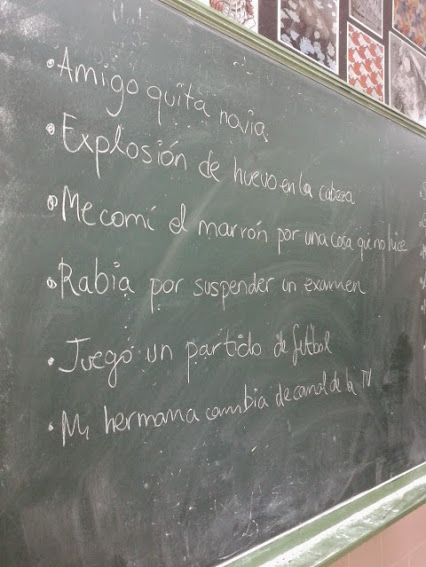 • Amigo quita novia.
• Explosión de huevo en la cabeza
• Me comí el marrón por una cosa que no hice
• Rabia por suspender un examen
• Juego un partido de futbol
• Mi hermana cambia de canal de la TV